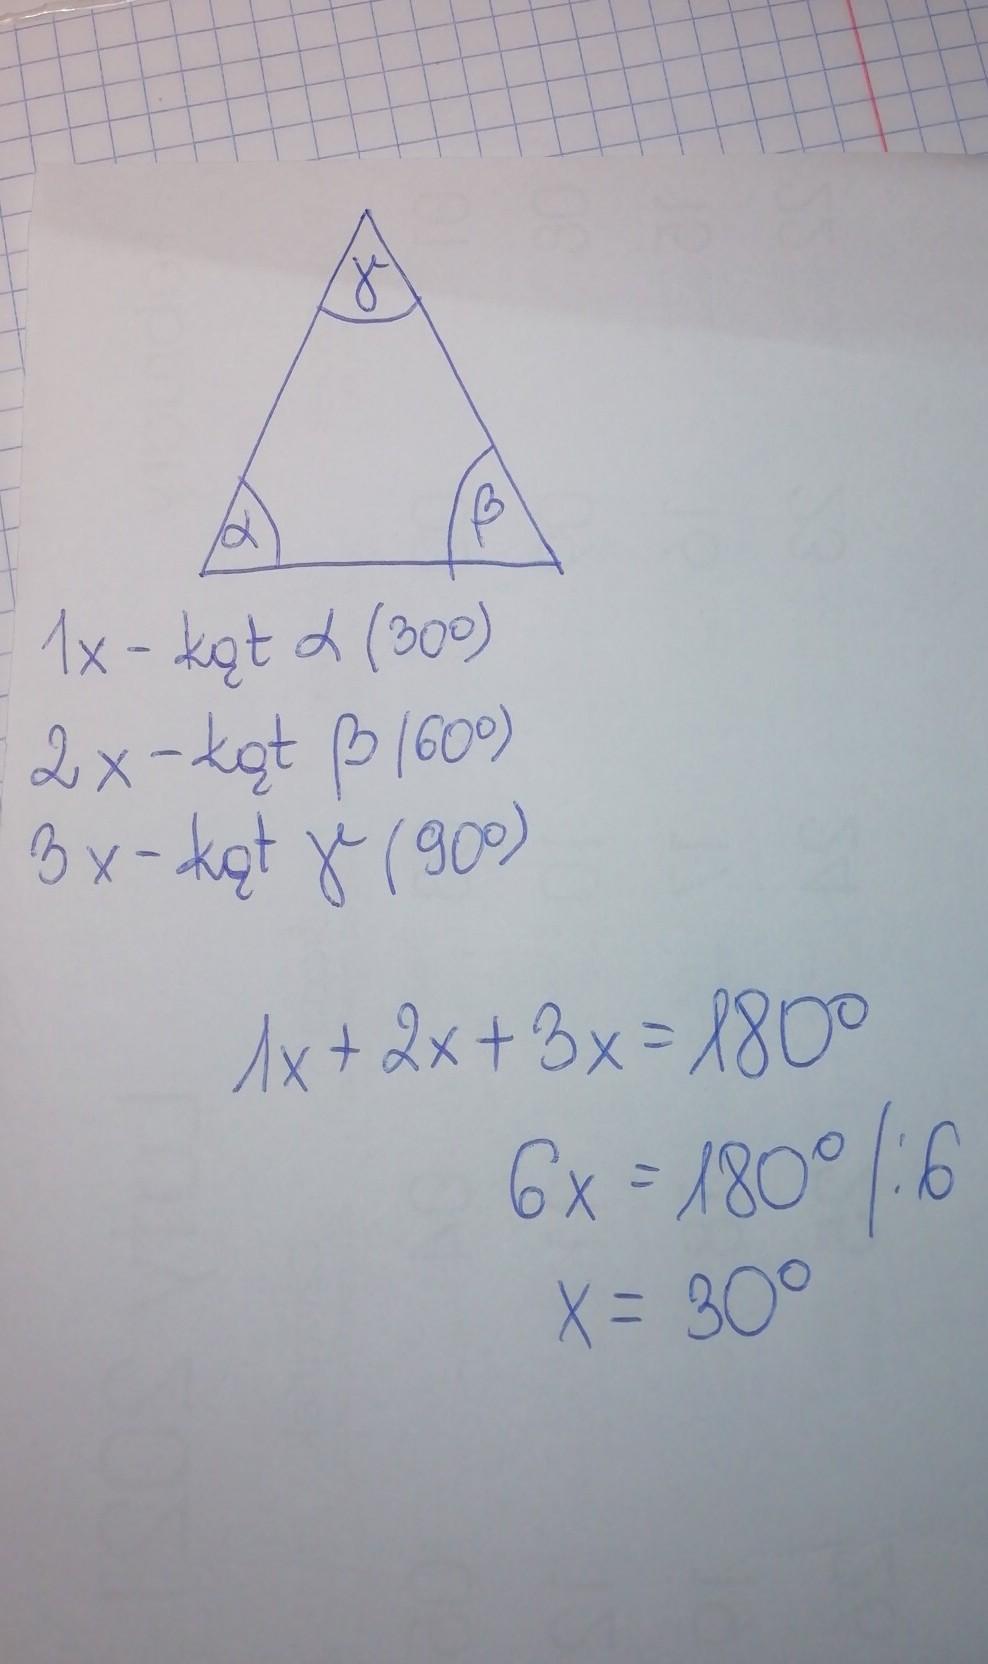 γ
α
β
1x - kąt α (30°)
2x - kąt β (60°)
3x - kąt γ (90°)
1x + 2x + 3x = 180°
6x = 180° /:6
x = 30°